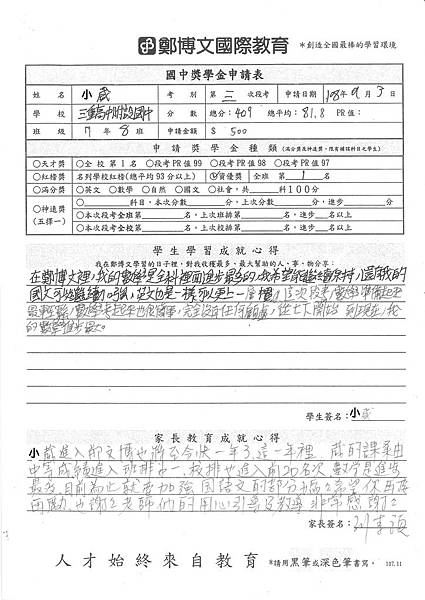 鄭博文國際教育 *創造全國最棒的學習環境
國中獎學金申請表
姓名 小葳 考別 第三次段考 申請日期 108年9月3日
學校 三重高中附設國中 分數 總分：409 總平均：81.8 PR值：
班級 7年8班 申請金額 $ 500
申請獎學金種類 (滿分獎及神進獎，限有補該科目之學生)
○天才獎 ○全校第1名 ○段考PR值99 ○段考PR值98 ○段考PR值97
○紅榜獎 名列學校紅榜(總平均93分以上) 資優獎 全班 第1名
○滿分獎 ○英文 ○數學 ○自然 ○國文 ○社會，共 科100分
○神進獎(五擇一) ○ 科目，本次分數 分，上次分數 分，進步 分
○本次段考全班第 名，上次班排第 名，進步 名以上
○本次段考全校第 名，上次校排第 名，進步 名以上
學生學習成就心得
我在鄭博文學習的日子裡，對我收穫最多、最大幫助的人、事、物分享：
在鄭博文裡，我的數學是全科裡面進步最多的，我希望能繼續保持，
國文可以繼續加強，英文也是一樣可以更上一層樓，這次段考，數學準備起
最輕鬆，數學考起來也很簡單，完全沒有任何顧慮，從七下開始到現在，我
的數學進步最大。
學生簽名：小葳
家長教育成就心得
小葳進入鄭文博也將至今快一年了，這一年裡 葳的課業由
中等成績進入班排第一，校排也進入前20名次，數學是進步
最多，目前為止就再加強國語文的部分
也謝謝老師他的用心引導及教導 非常感謝
家長簽名：
人才始終來自教育 *請用黑筆或深色筆書寫。 107.11